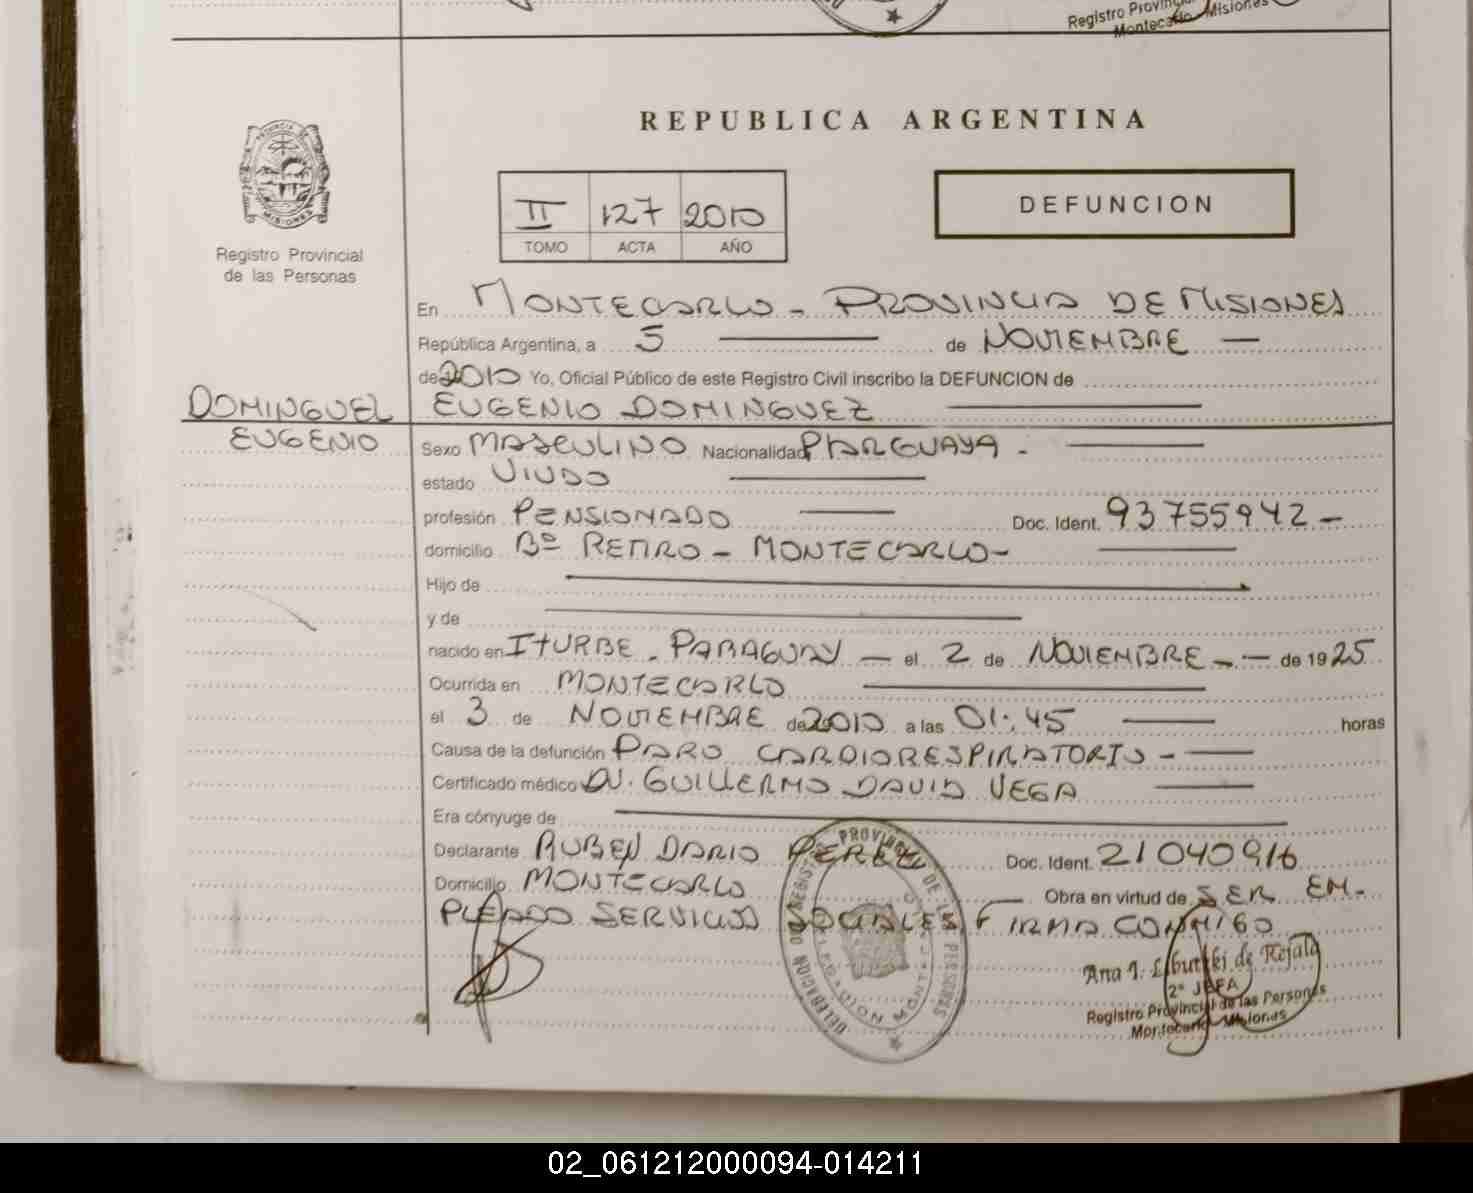 Registro Provincial
Montecarlo Misiones
REPUBLICA ARGENTINA
PROVINCIA DE
MISIONES
Registro Provincial
de las Personas
II 127 2010
TOMO ACTA AÑO
DEFUNCION
En MONTECARLO - PROVINCIA DE MISIONES
República Argentina, a 5 de NOVIEMBRE
de 2010 Yo, Oficial Público de este Registro Civil inscribo la DEFUNCION de
DOMINGUEZ EUGENIO DOMINGUEZ
EUGENIO Sexo MASCULINO Nacionalidad PARGUAYA -
estado VIUDO
profesión PENSIONADO Doc. Ident. 93755942 -
domicilio Bº RETIRO - MONTECARLO -
Hijo de
y de
nacido en ITURBE - PARAGUAY - el 2 de NOVIEMBRE - - de 1925
Ocurrida en MONTECARLO
el 3 de NOVIEMBRE de 2010 a las 01:45 horas
Causa de la defunción PARO CARDIORESPIRATORIO -
Certificado médico Dr. GUILLERMO DAVID VEGA
Era cónyuge de
Declarante RUBEN DARIO PEREZ Doc. Ident. 21040916
Domicilio MONTECARLO Obra en virtud de SER EM-
PLEADO SERVICIOS SOCIALES FIRMA CONMIGO
Ana I. de Rejala
2º JEFA
Registro Provincial de las Personas
Montecarlo Misiones
02_061212000094-014211